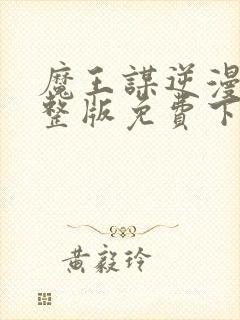 魔王謀逆漫
整版免費下
黃毅玲